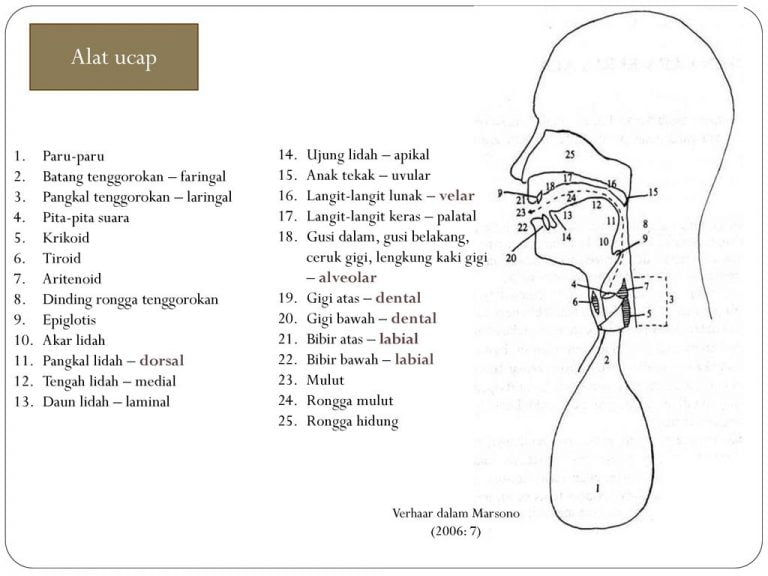 Alat ucap
1. Paru-paru
2. Batang tenggorokan – faringal
3. Pangkal tenggorokan – laringal
4. Pita-pita suara
5. Krikoid
6. Tiroid
7. Aritenoid
8. Dinding rongga tenggorokan
9. Epiglotis
10. Akar lidah
11. Pangkal lidah – dorsal
12. Tengah lidah – medial
13. Daun lidah – laminal
14. Ujung lidah – apikal
15. Anak tekak – uvular
16. Langit-langit lunak – velar
17. Langit-langit keras – palatal
18. Gusi dalam, gusi belakang,
ceruk gigi, lengkung kaki gigi
– alveolar
19. Gigi atas – dental
20. Gigi bawah – dental
21. Bibir atas – labial
22. Bibir bawah – labial
23. Mulut
24. Rongga mulut
25. Rongga hidung
25
17
16
18
9
15
21
24
12
23
13
11
8
22
14
10
9
20
4
7
6
3
5
2
1
Verhaar dalam Marsono
(2006: 7)